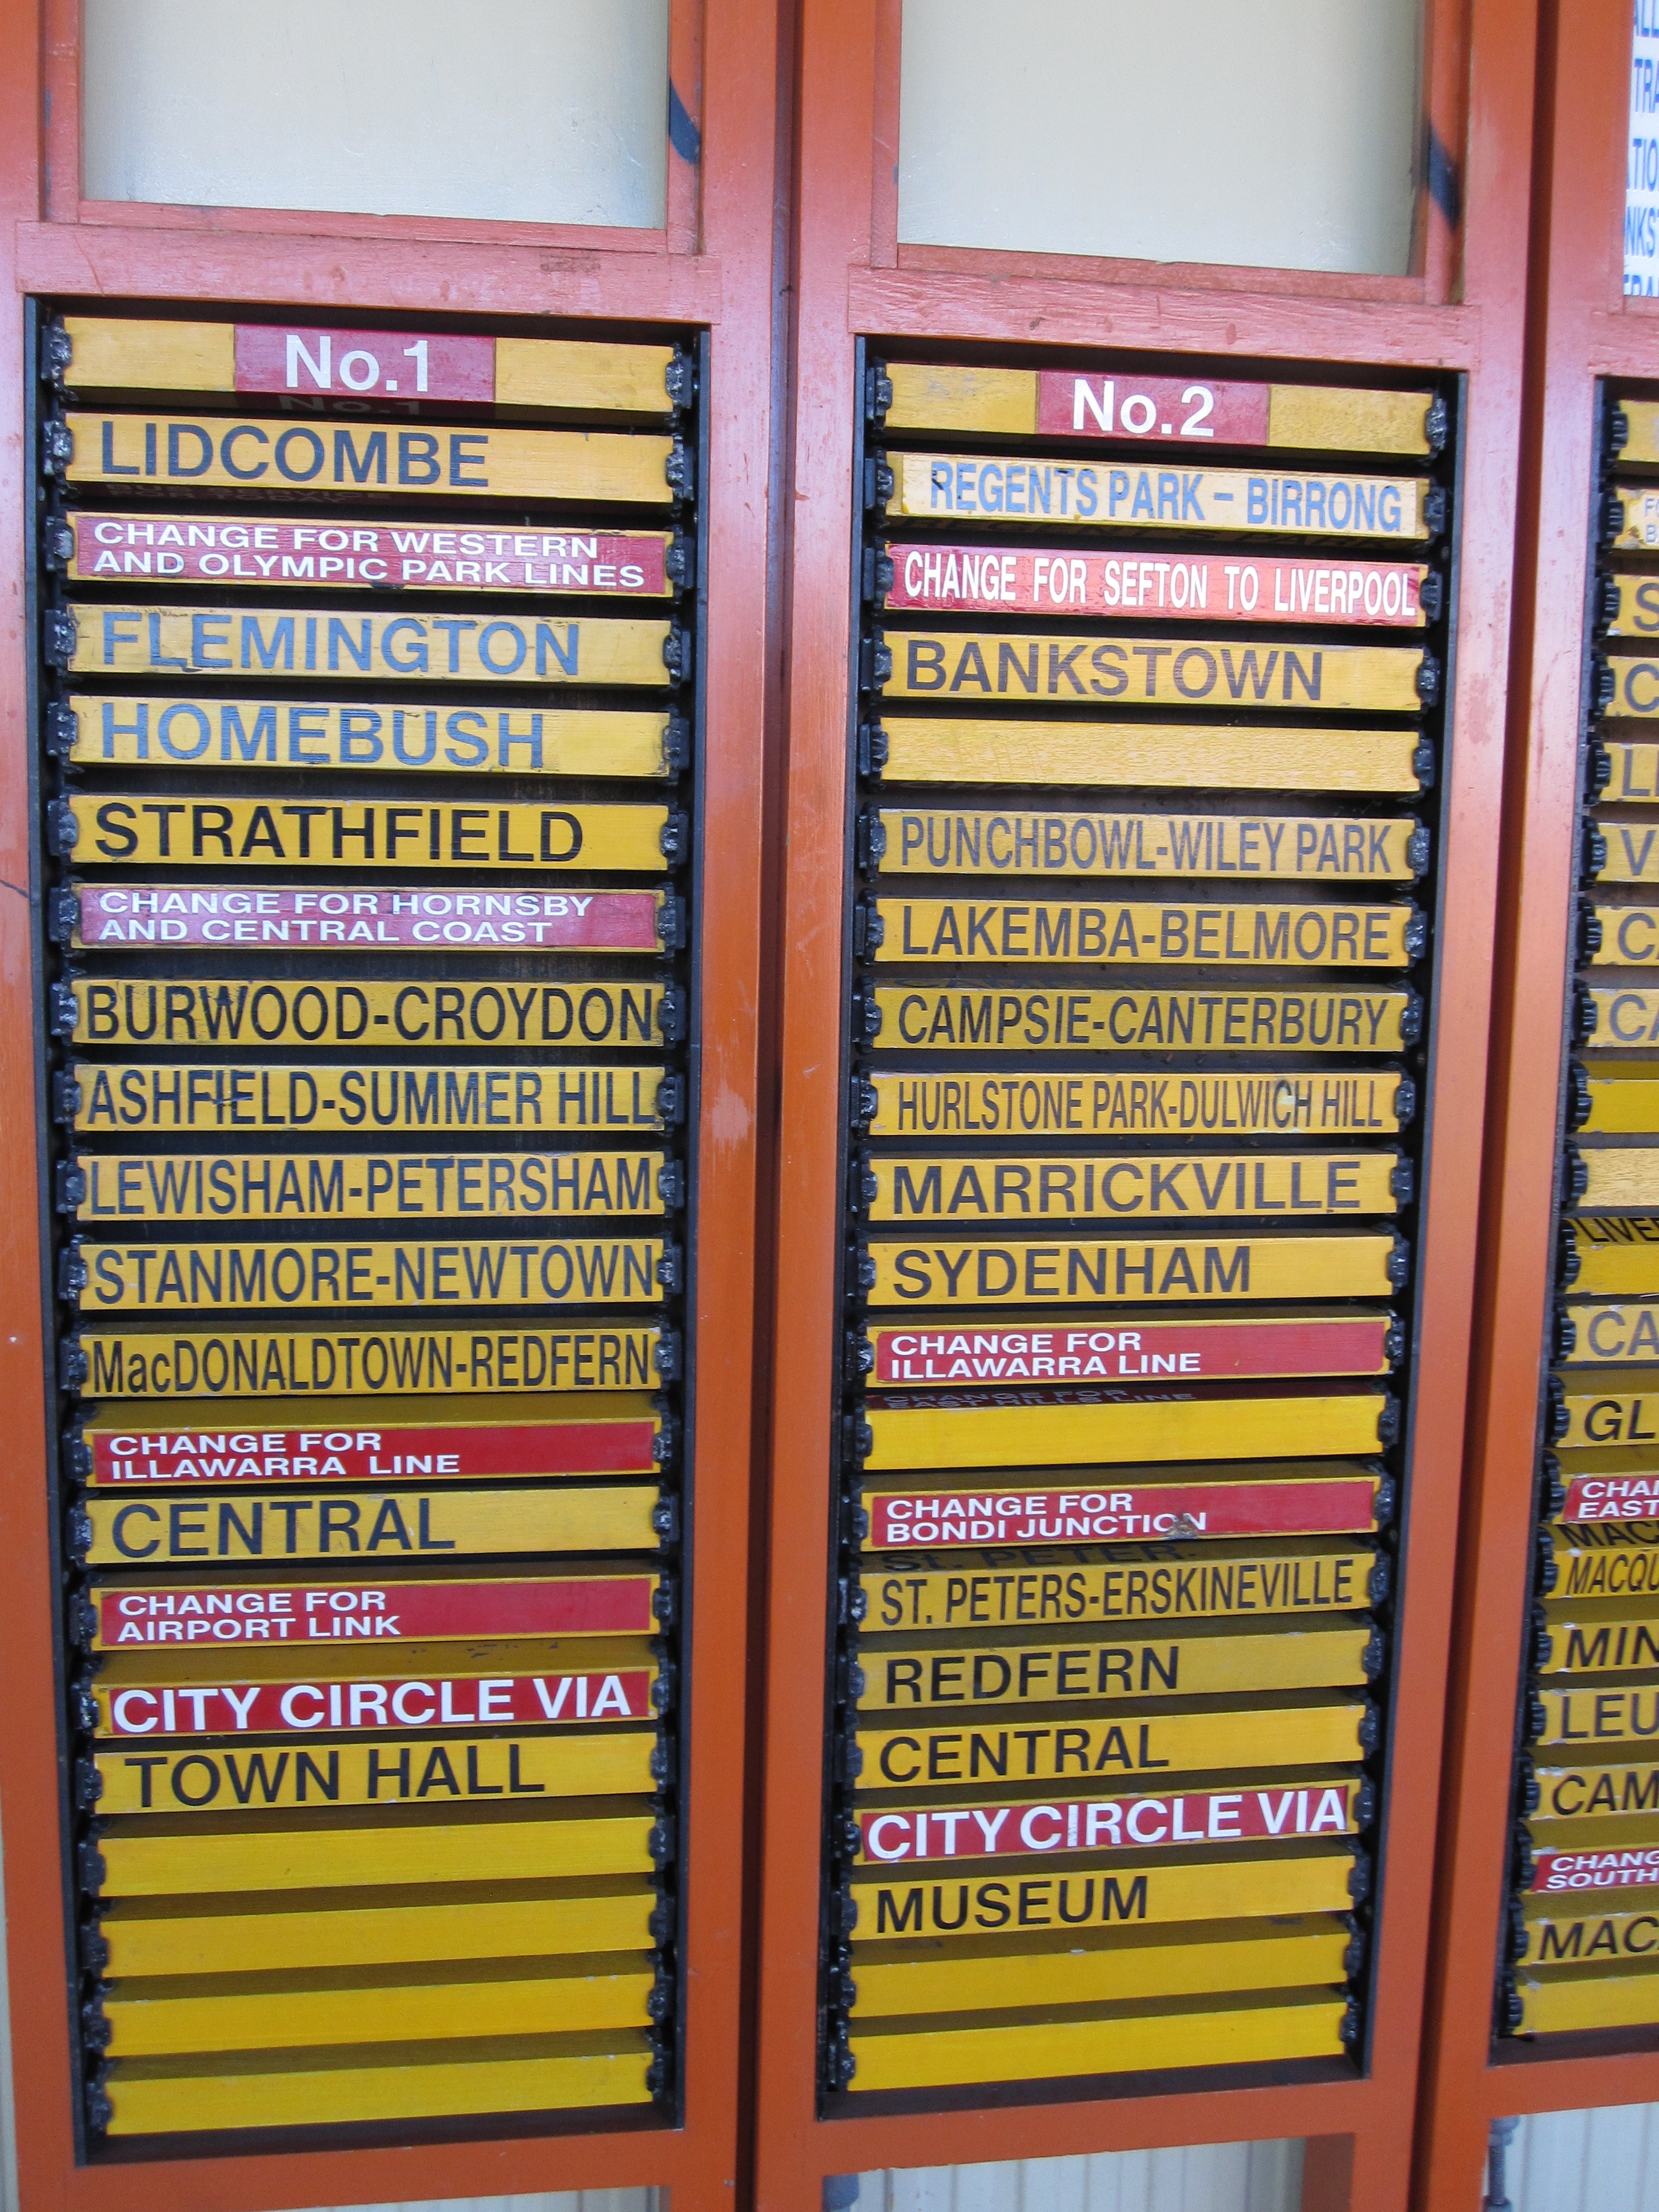 No.1
LIDCOMBE
CHANGE FOR WESTERN
AND OLYMPIC PARK LINES
FLEMINGTON
HOMEBUSH
STRATHFIELD
CHANGE FOR HORNSBY
AND CENTRAL COAST
BURWOOD-CROYDON
ASHFIELD-SUMMER HILL
LEWISHAM-PETERSHAM
STANMORE-NEWTOWN
MacDONALDTOWN-REDFERN
CHANGE FOR
ILLAWARRA LINE
CENTRAL
CHANGE FOR
AIRPORT LINK
CITY CIRCLE VIA
TOWN HALL
No.2
REGENTS PARK - BIRRONG
CHANGE FOR SEFTON TO LIVERPOOL
BANKSTOWN
PUNCHBOWL-WILEY PARK
LAKEMBA-BELMORE
CAMPSIE-CANTERBURY
HURLSTONE PARK-DULWICH HILL
MARRICKVILLE
SYDENHAM
CHANGE FOR
ILLAWARRA LINE
CHANGE FOR
EAST HILLS LINE
CHANGE FOR
BONDI JUNCTION
ST. PETERS-ERSKINEVILLE
REDFERN
CENTRAL
CITY CIRCLE VIA
MUSEUM